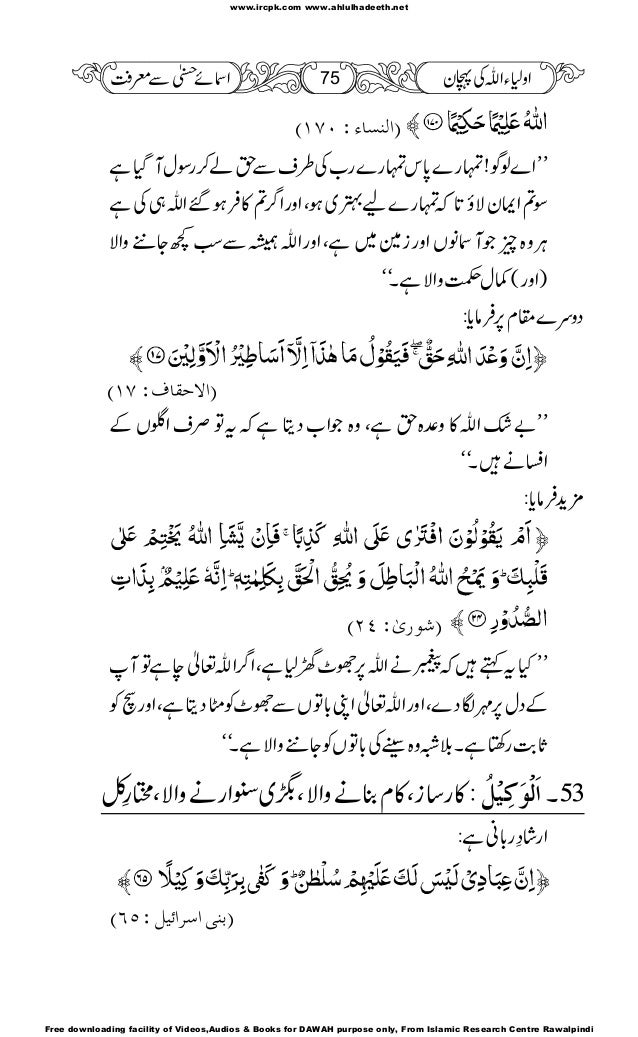 www.ircpk.com www.ahlulhadeeth.net
اولیاء اللہ کی پہچان 75 اسمائے حسنیٰ سے معرفت
اللّٰهُ عَلِيْمًا حَكِيْمًا ﴿۱۷۰﴾ ﴾ (النساء : ١٧٠)
’’اے لوگو! تمہارے پاس تمہارے رب کی طرف سے حق لے کر رسول آ گیا ہے
سو تم ایمان لاؤ تا کہ تمہارے لیے بہتری ہو، اور اگر تم کافر ہو گئے اللہ ہی کی ہے
ہر وہ چیز جو آسمانوں اور زمین میں ہے، اور اللہ ہمیشہ سے سب کچھ جاننے والا
(اور) کمال حکمت والا ہے۔‘‘
دوسرے مقام پر فرمایا:
﴿ اِنَّ وَعْدَ اللّٰهِ حَقٌّ ۖۚ فَيَقُوْلُ مَا هٰذَاۤ اِلَّاۤ اَسَاطِيْرُ الْاَوَّلِيْنَ ﴿۱۷﴾ ﴾
(الاحقاف : ١٧)
’’بے شک اللہ کا وعدہ حق ہے، وہ جواب دیتا ہے کہ یہ تو صرف اگلوں کے
افسانے ہیں۔‘‘
مزید فرمایا:
﴿ اَمْ يَقُوْلُوْنَ افْتَرٰى عَلَى اللّٰهِ كَذِبًا ۚ فَاِنْ يَّشَاِ اللّٰهُ يَخْتِمْ عَلٰى
قَلْبِكَ ؕ وَ يَمْحُ اللّٰهُ الْبَاطِلَ وَ يُحِقُّ الْحَقَّ بِكَلِمٰتِهٖ ؕ اِنَّهٗ عَلِيْمٌۢ بِذَاتِ
الصُّدُوْرِ ﴿۲۴﴾ ﴾ (شوریٰ : ٢٤)
’’کیا یہ کہتے ہیں کہ پیغمبر نے اللہ پر جھوٹ گھڑ لیا ہے، اگر اللہ تعالیٰ چاہے تو آپ
کے دل پر مہر لگا دے، اور اللہ تعالیٰ اپنی باتوں سے جھوٹ کو مٹا دیتا ہے، اور سچ کو
ثابت رکھتا ہے۔ بلاشبہ وہ سینے کی باتوں کو جاننے والا ہے۔‘‘
53۔ اَلْوَكِيْلُ : کارساز، کام بنانے والا، بگڑی سنوارنے والا، مختارِ کل
ارشادِ ربانی ہے:
﴿ اِنَّ عِبَادِيْ لَيْسَ لَكَ عَلَيْهِمْ سُلْطٰنٌ ؕ وَ كَفٰى بِرَبِّكَ وَكِيْلًا ﴿۶۵﴾ ﴾
(بنی اسرائیل : ٦٥)
Free downloading facility of Videos,Audios & Books for DAWAH purpose only, From Islamic Research Centre Rawalpindi